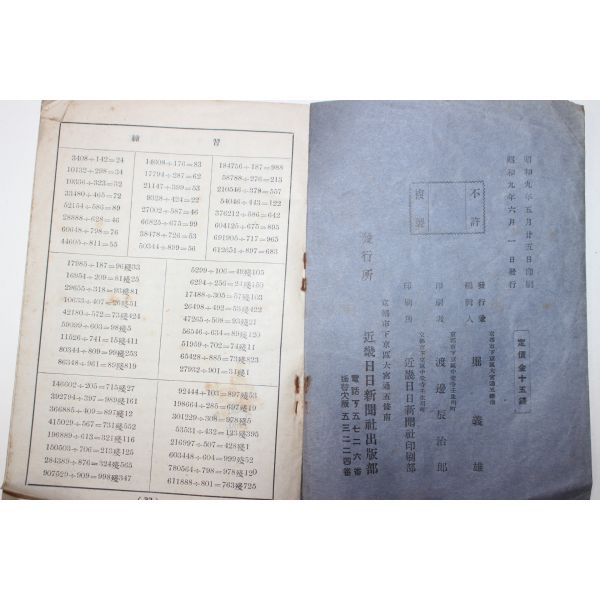 練習
3408÷142=24
10132÷298=34
16956÷323=52
33480÷465=72
52154÷586=89
28888÷628=46
60648÷798=76
44605÷811=55
14608÷176=83
17794÷287=62
21147÷399=53
9328÷424=22
27002÷587=46
66825÷675=99
38478÷726=53
50344÷899=56
184756÷187=988
58788÷276=213
210546÷378=557
54046÷443=122
376212÷586=642
604125÷675=895
691905÷717=965
612651÷897=683
17985÷187=96殘33
16954÷209=81殘25
29655÷318=93殘81
10633÷407=26殘51
42180÷572=73殘424
59099÷603=98殘5
11526÷741=15殘411
80344÷809=99殘253
86348÷961=89殘819
5299÷106=49殘105
6294÷256=24殘150
17488÷305=57殘103
26492÷508=52殘76
47265÷508=93殘21
56546÷634=89殘120
51959÷702=74殘11
65428÷885=73殘823
27932÷901=31殘1
146602÷205=715殘27
392794÷397=989殘161
366885÷409=897殘12
415029÷567=731殘552
196889÷613=321殘116
150503÷706=213殘125
284389÷876=324殘565
907529÷909=998殘347
92444÷103=897殘53
198664÷285=697殘19
301229÷309=974殘263
53531÷432=123殘395
216997÷507=428殘1
603448÷604=999殘52
780564÷798=978殘120
611888÷801=763殘725
昭和九年五月廿五日印刷
昭和九年六月一日發行
不許
複製
定價金十五錢
堀義雄
渡邊辰治郎
印刷所
近畿日日新聞社印刷部
發行所
京都市下京區大宮通五條南
近畿日日新聞社出版部
電話下五七二六番